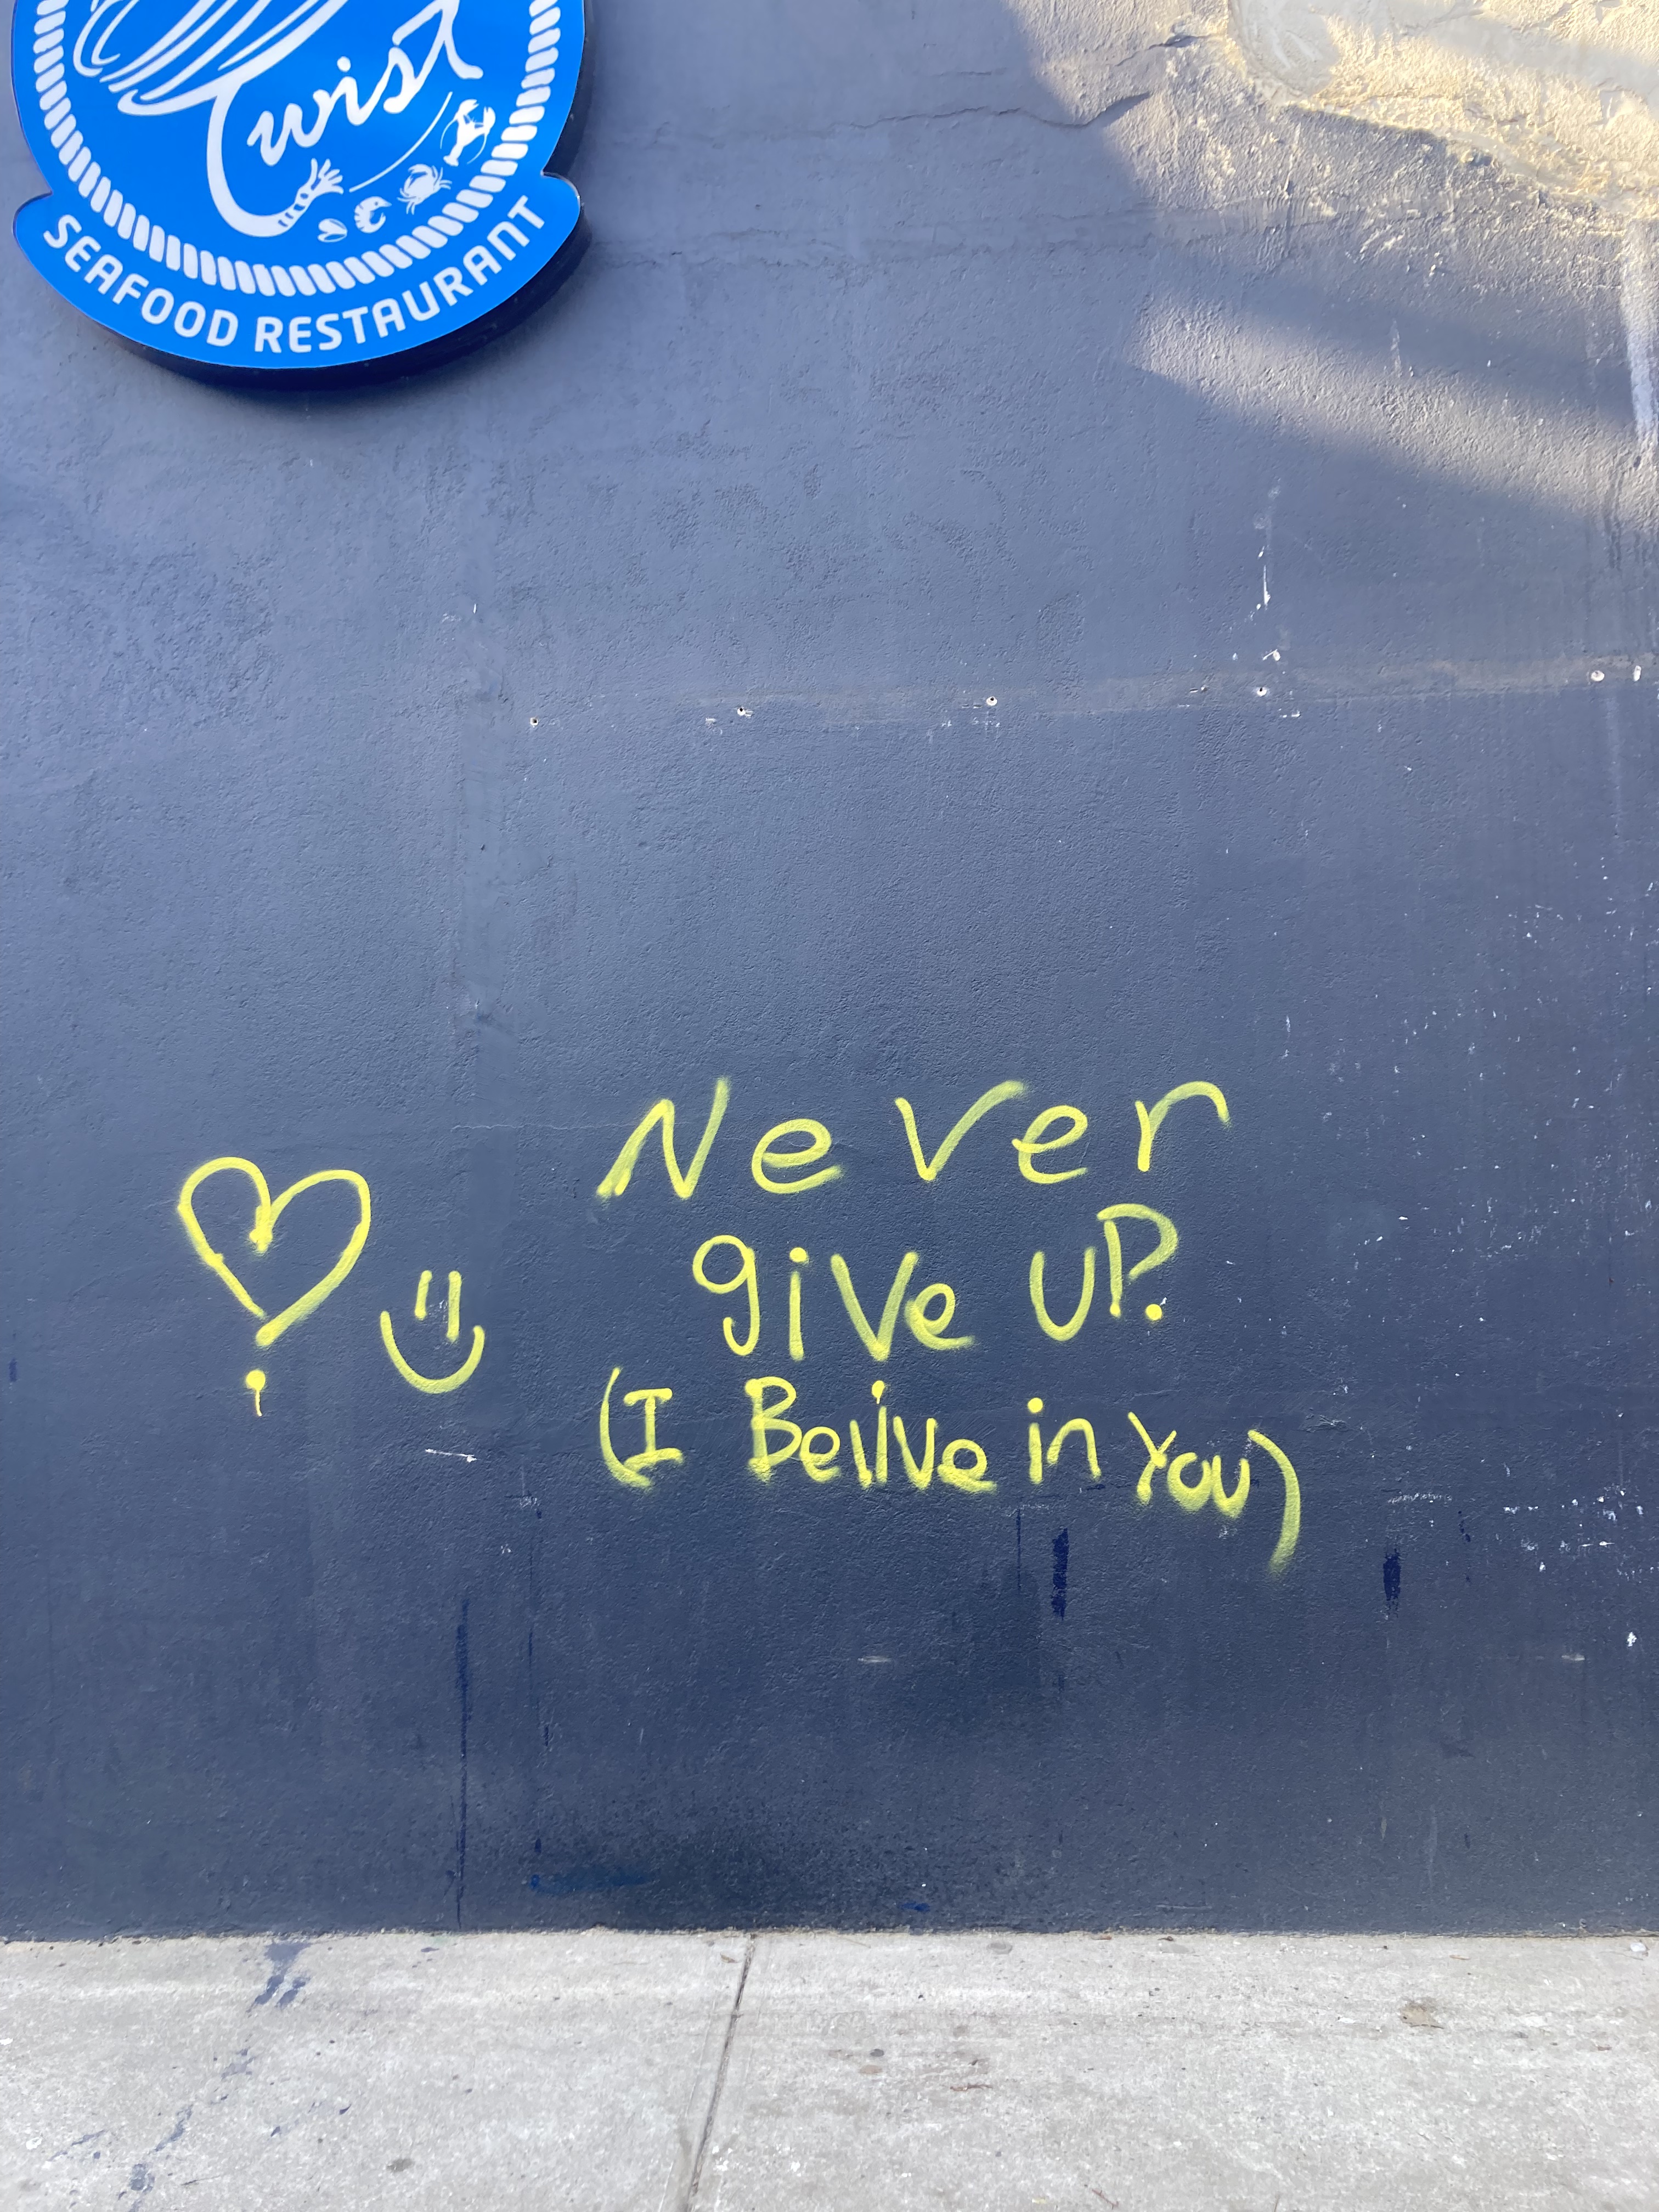 Twist
SEAFOOD RESTAURANT
Never
give UP.
(I Belive in You)